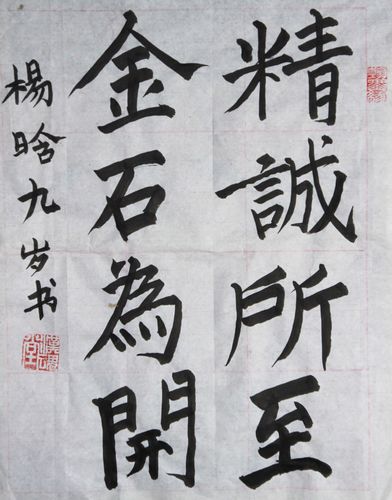 精誠所至
金石為開
楊晗九岁书